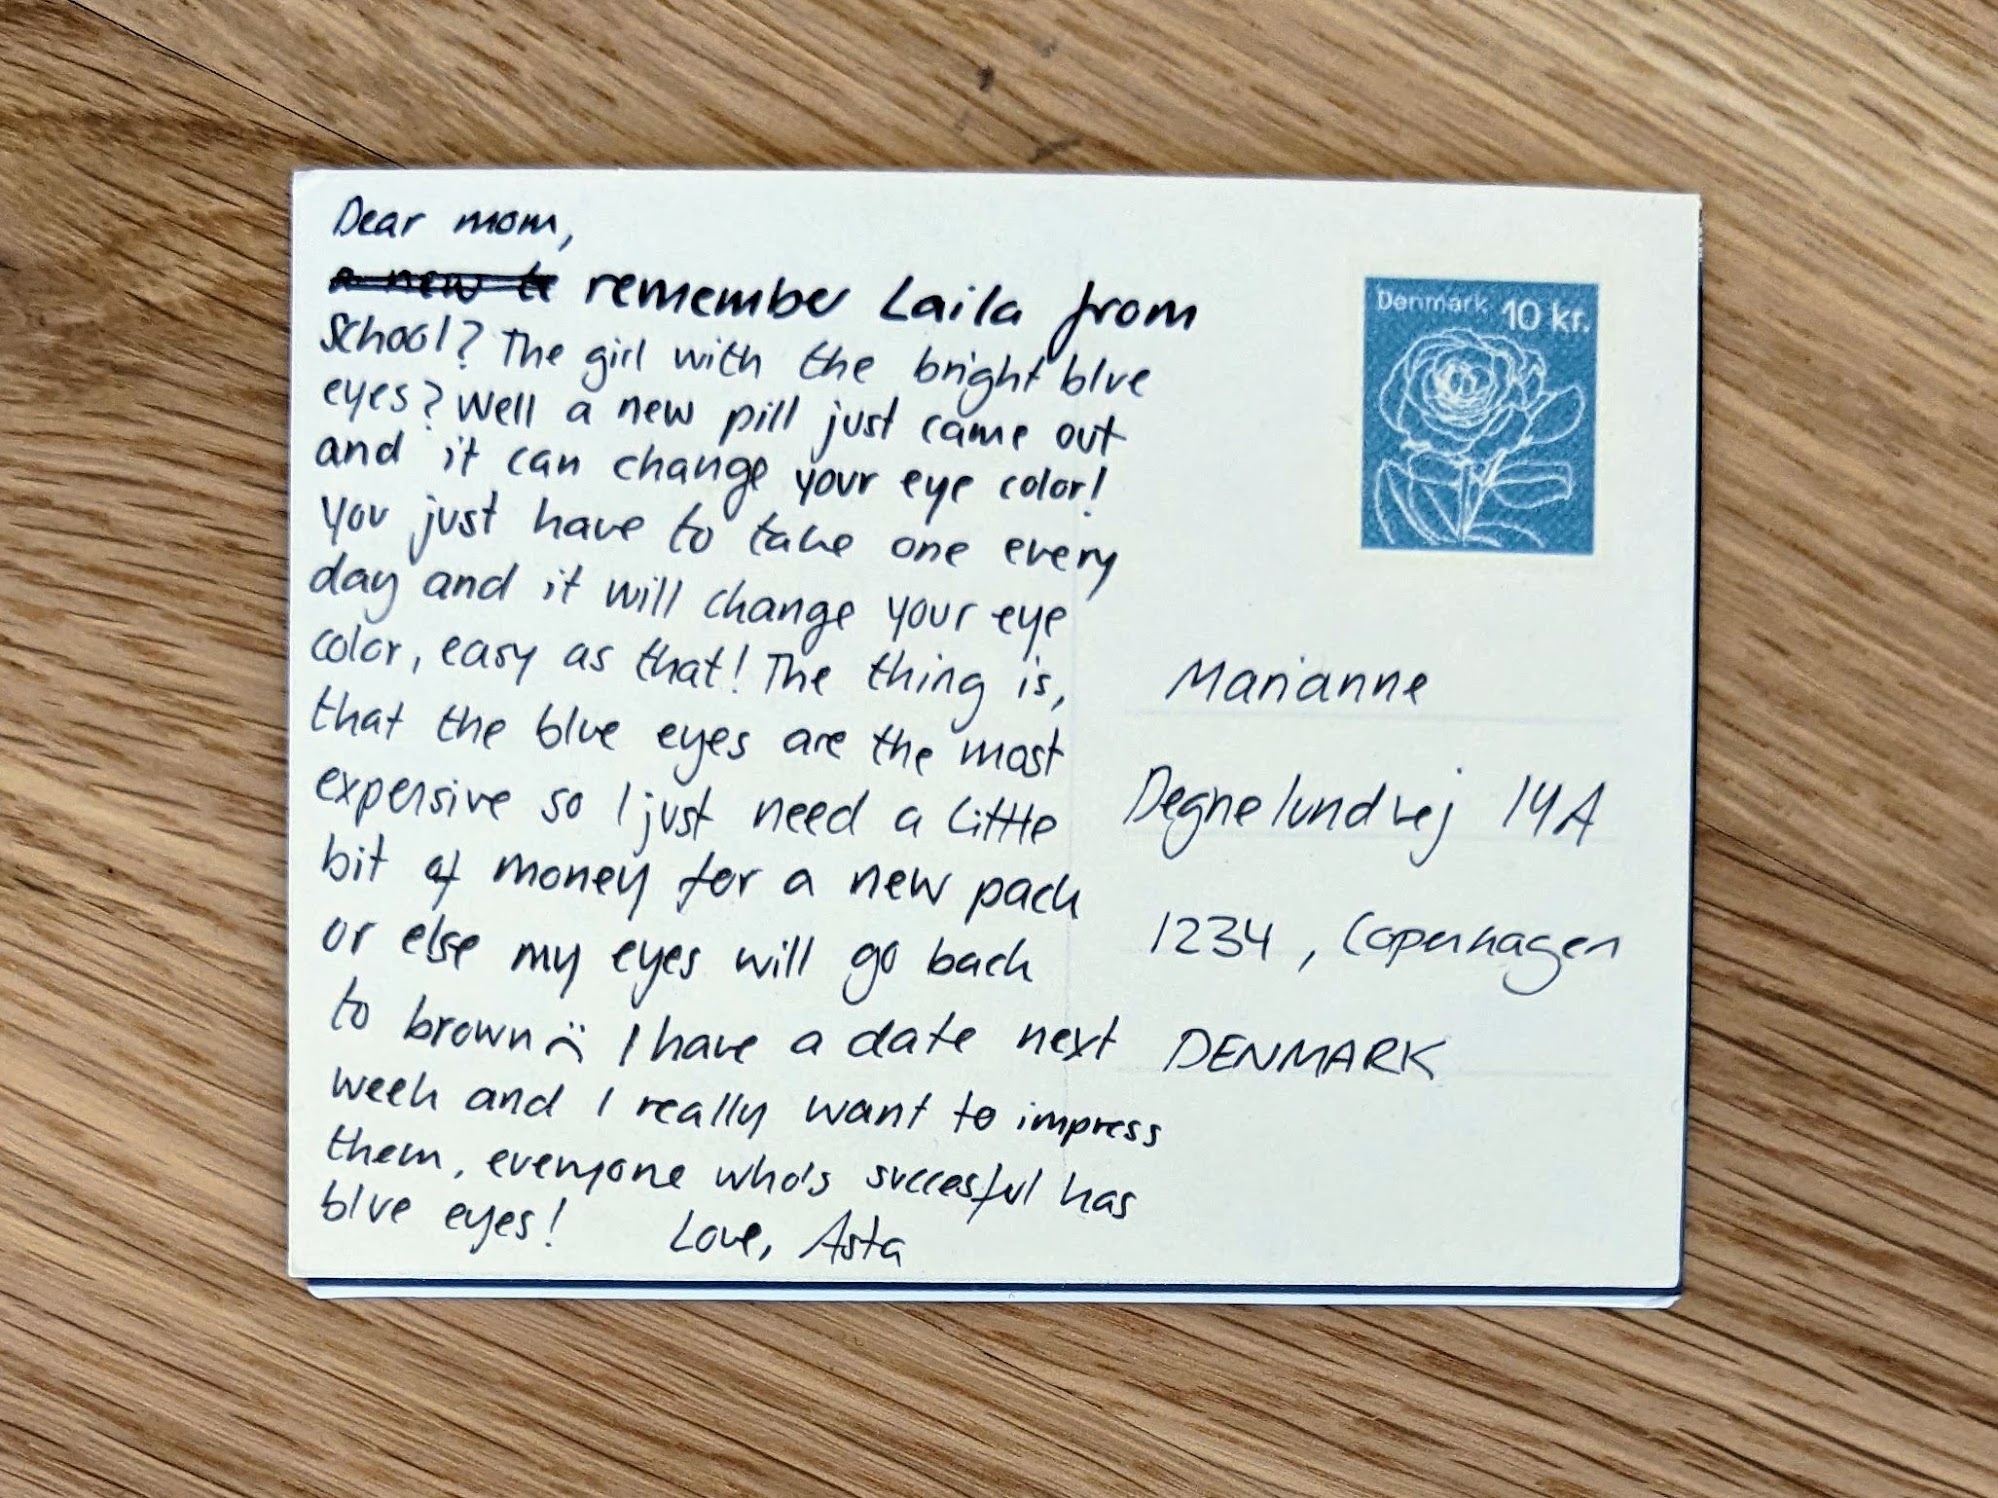 Dear mom,
a new te remember Laila from
school? The girl with the bright blue
eyes? Well a new pill just came out
and it can change your eye color!
You just have to take one every
day and it will change your eye
color, easy as that! The thing is,
that the blue eyes are the most
expensive so I just need a little
bit of money for a new pack
or else my eyes will go back
to brown :( I have a date next
week and I really want to impress
them, everyone who's succesful has
blue eyes! Love, Asta
Denmark 10 kr.
Marianne
Degnelundvej 14A
1234, Copenhagen
DENMARK